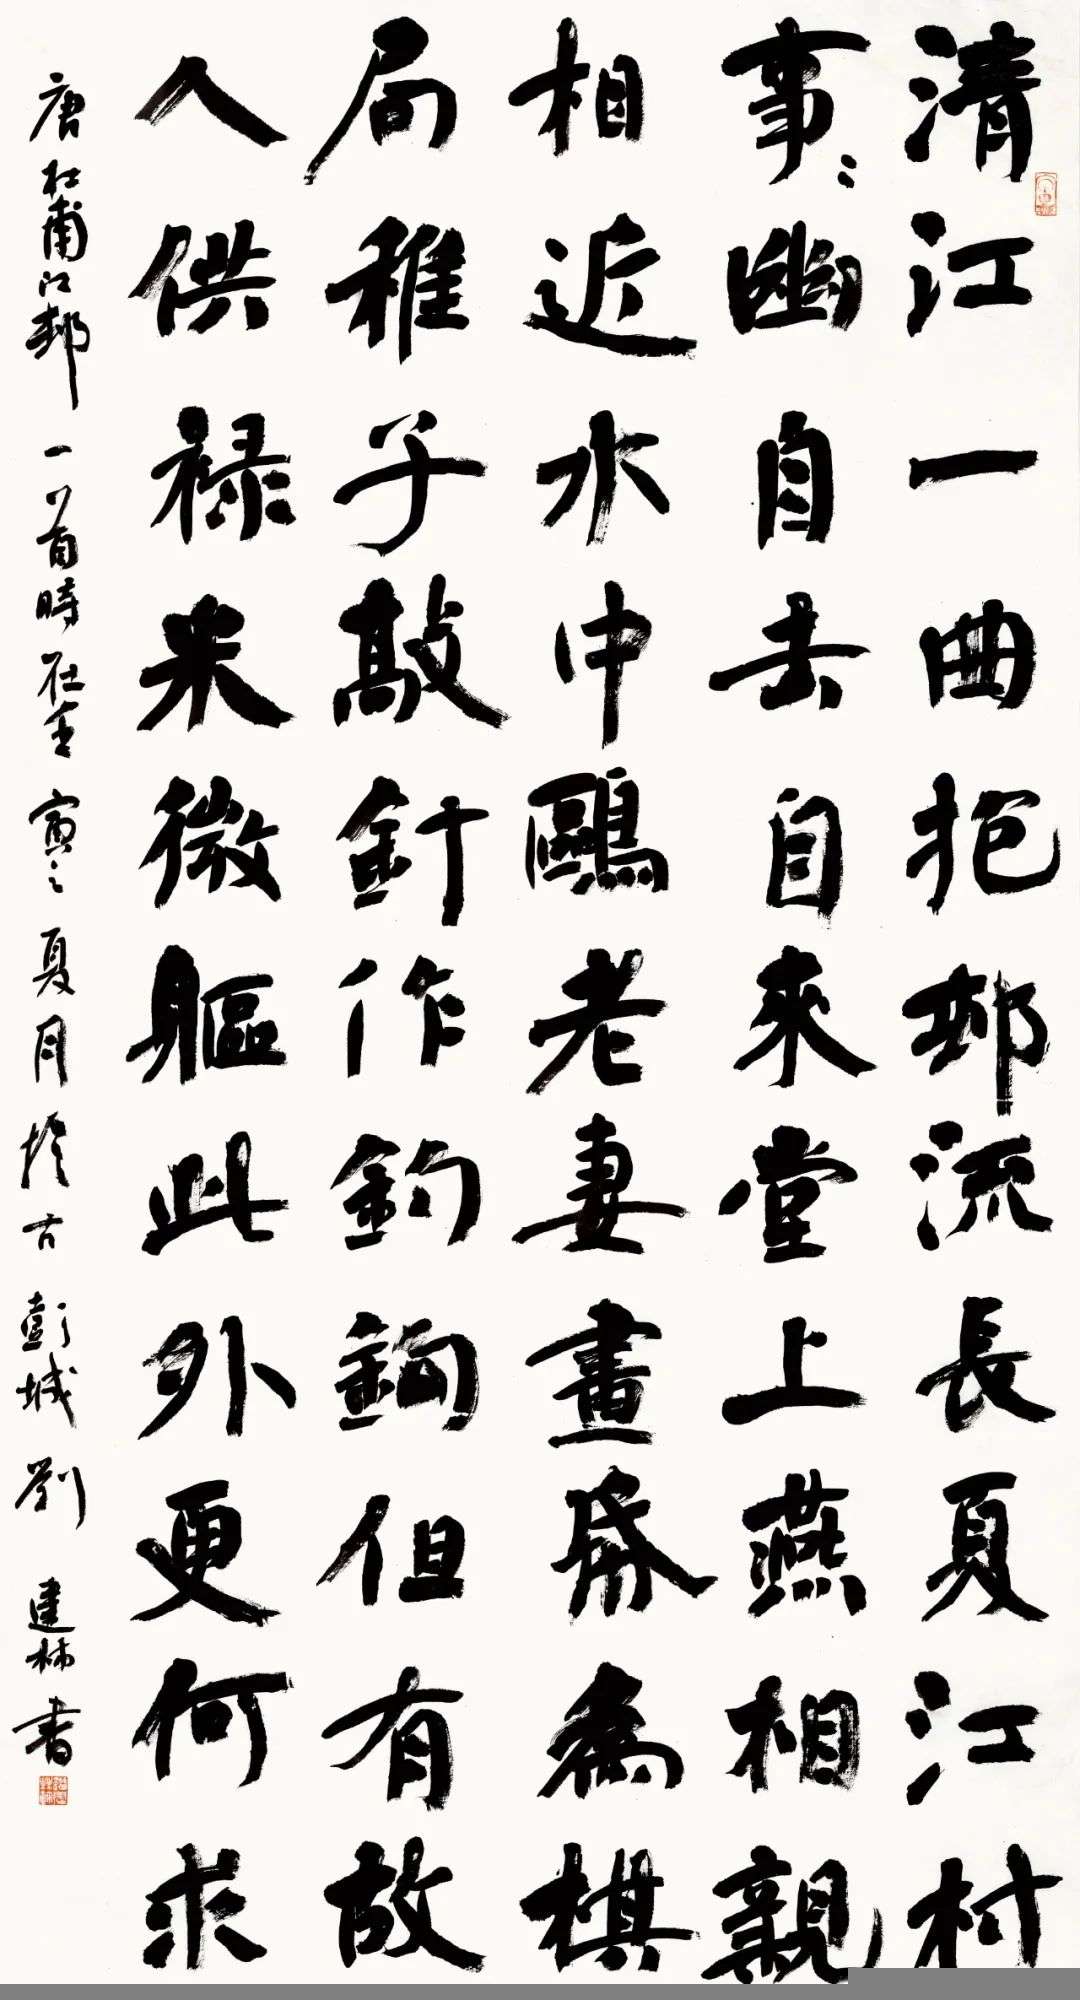 清江一曲抱邨流長夏江村
事〻幽自去自來堂上燕相親
相近水中鷗老妻畫帋為棋
局稚子敲針作釣鉤但有故
人供禄米微軀此外更何求
唐杜甫江邨一首時在壬寅之夏月於古彭城劉建林書